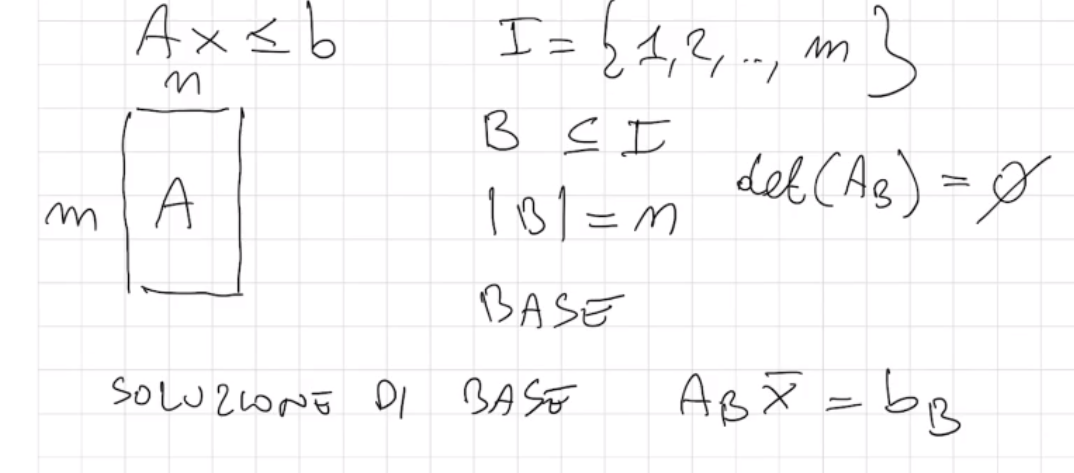 Ax ≤ b
I = {1, 2, .., m}
n
B ⊆ I
det(A_B) = 0̸
m A
|B| = n
BASE
SOLUZIONE DI BASE A_B x̄ = b_B